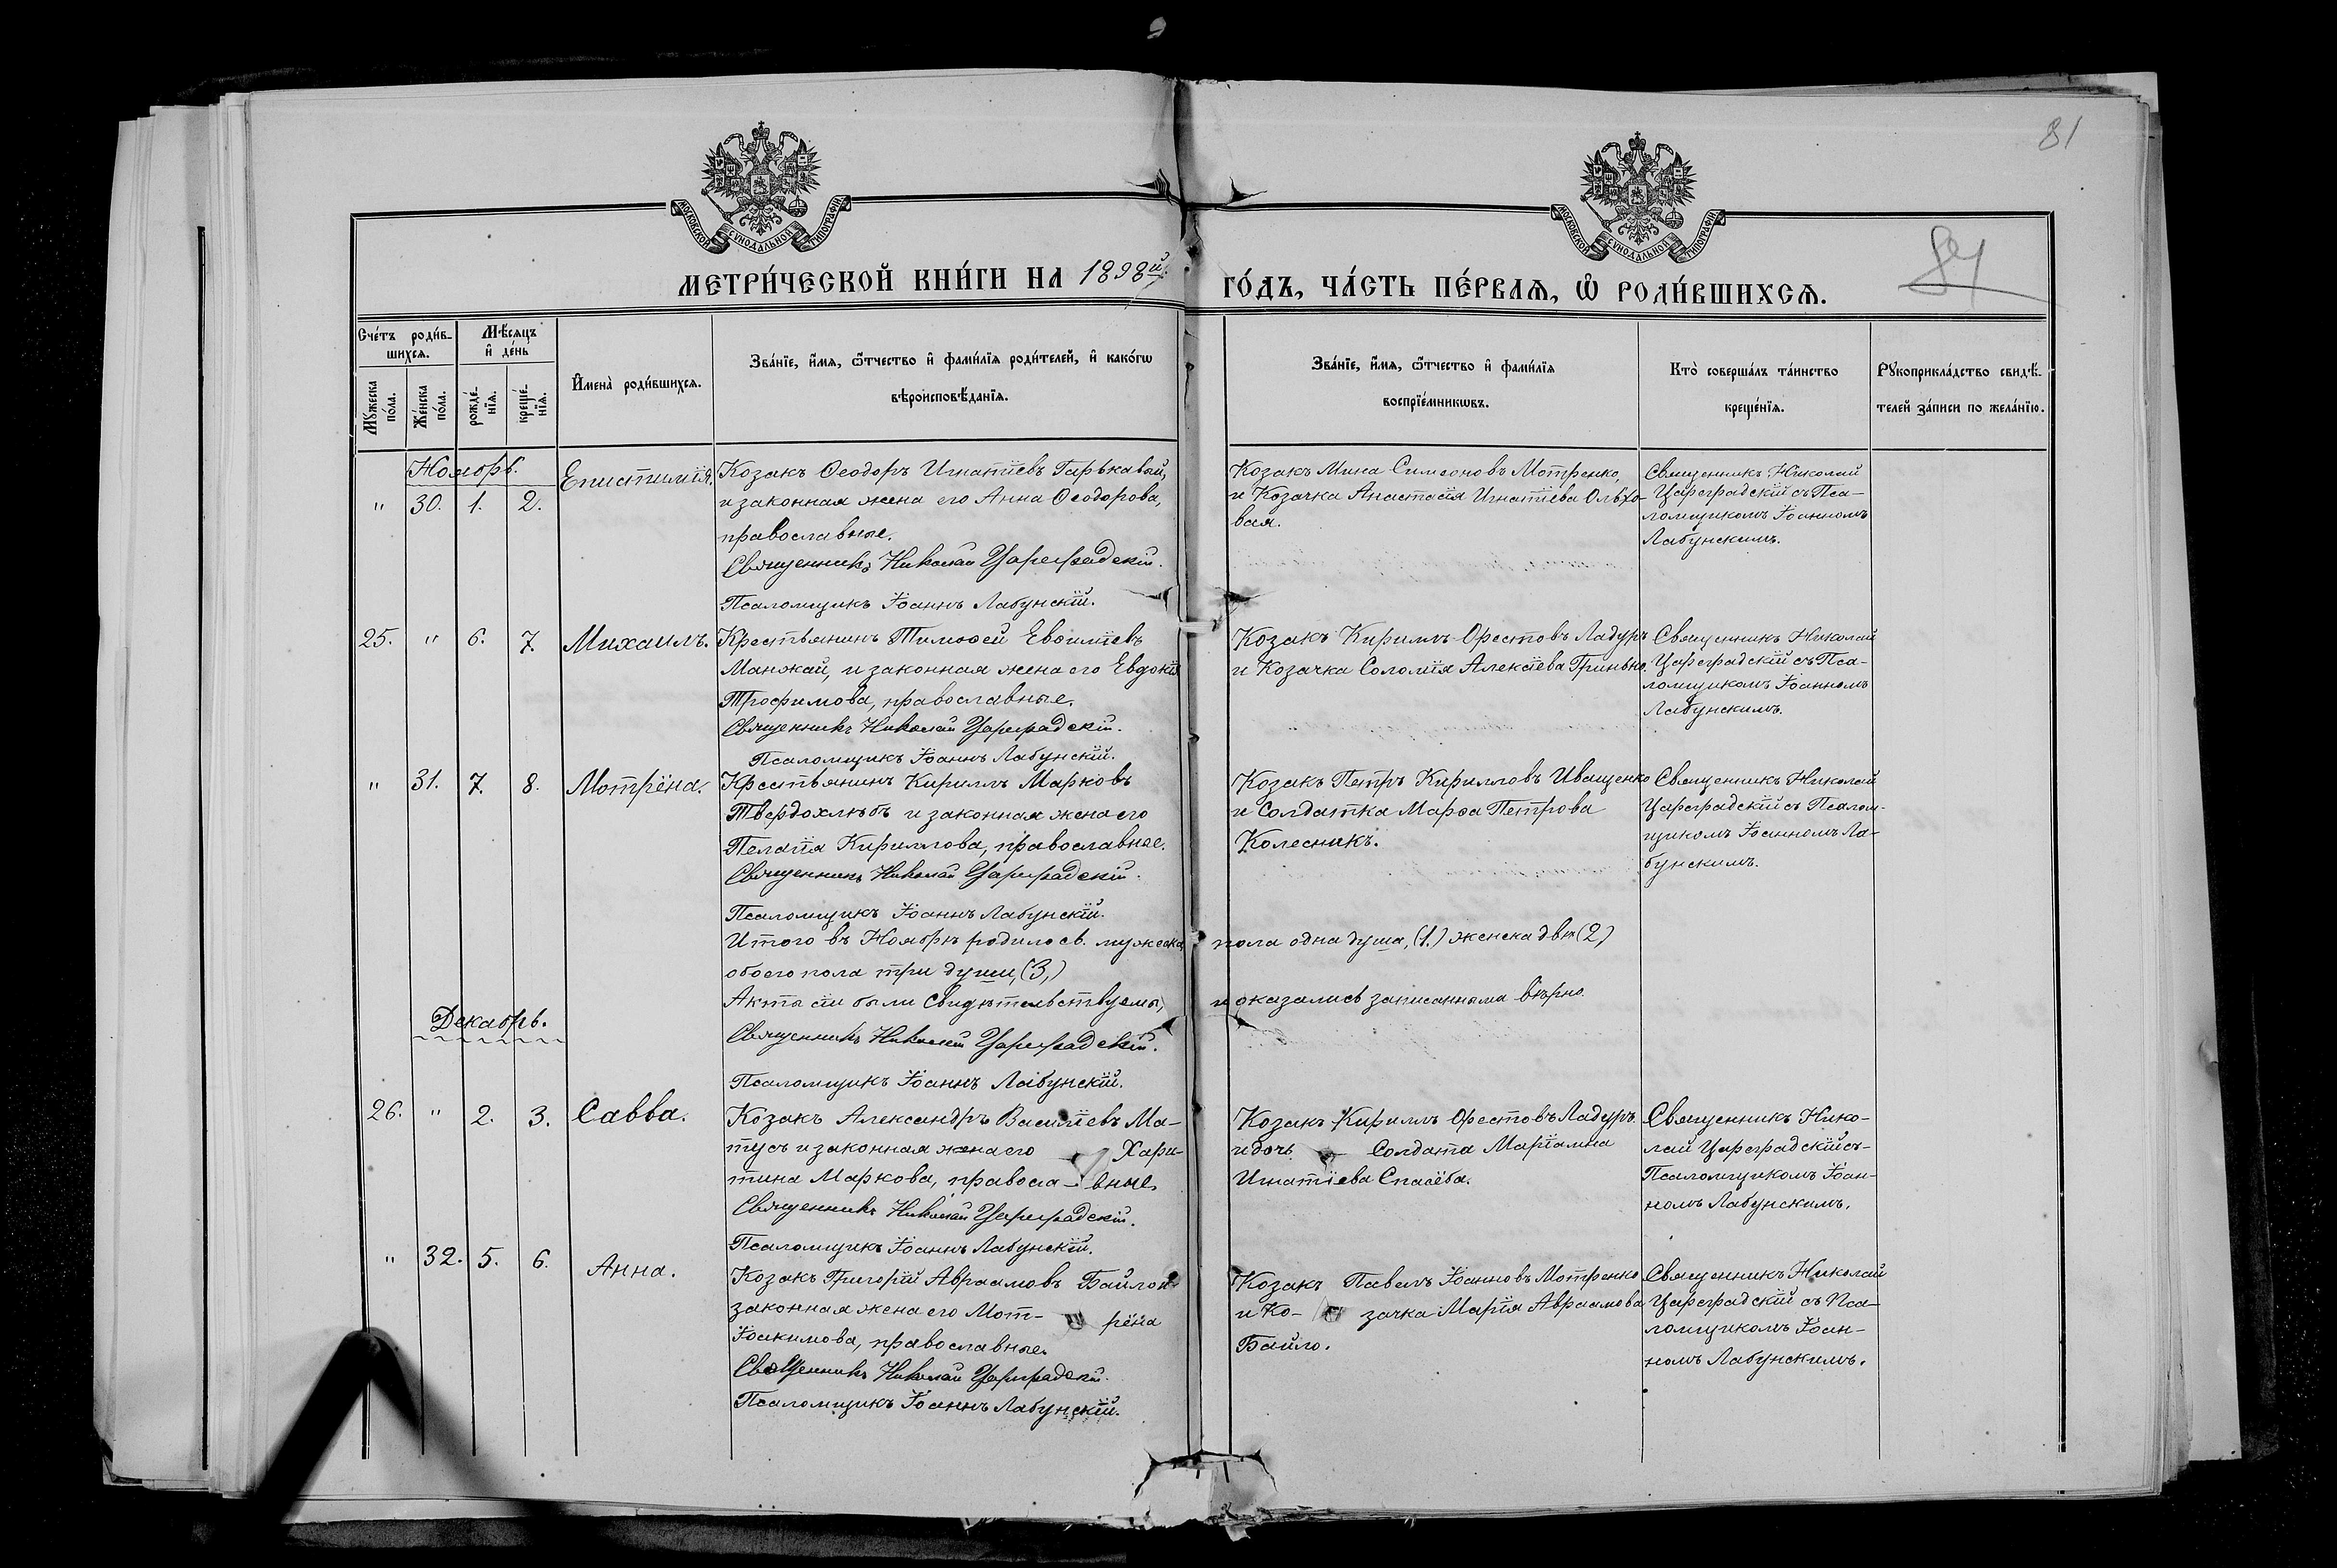 81
МОСКОВСКОЙ СУНОДАЛЬНОЙ ТИПОГРАФІИ
МОСКОВСКОЙ СУНОДАЛЬНОЙ ТИПОГРАФІИ
МЕТРИ́ЧЕСКОЙ КНИ́ГИ НА 1898й
ГО́ДЪ, ЧА́СТЬ ПЕ́РВАѦ, Ѡ҆ РОДИ́ВШИХСѦ.
Сче́тъ роди́в-
шихсѧ.
Мѣ́сѧцъ
и҆ де́нь
Мꙋ́жеска по́ла.
Же́нска по́ла.
рожде́-
нїѧ.
креще́-
нїѧ.
И҆мена̀ роди́вшихсѧ.
Зва́нїе, и҆́мѧ, ѻ҆́тчество и҆ фами́лїѧ роди́телей, и҆ како́гѡ
вѣроисповѣ́данїѧ.
Зва́нїе, и҆́мѧ, ѻ҆́тчество и҆ фами́лїѧ
воспрїе́мникѡвъ.
Кто̀ соверша́лъ та́инство
креще́нїѧ.
Рꙋкоприкла́дство свидѣ́-
телей за́писи по жела́нїю.
Ноябрь.
" 30. 1. 2.
Епистимія.
Козакъ Ѳеодоръ Игнатіевъ Гарькавый,
и законная жена его Анна Ѳеодорова,
православные.
Священникъ Николай Цареградскій.
Псаломщикъ Іоаннъ Лабунскій.
Козакъ Мина Симеоновъ Мотренко,
и Козачка Анастасія Игнатіева Ольхо-
вая.
Священникъ Николай
Цареградскій съ Пса-
ломщикомъ Іоанномъ
Лабунскимъ.
25. " 6. 7. Михаилъ.
Крестьянинъ Тимоѳей Евѳиміевъ
Манжай, и законная жена его Евдокія
Трофимова, православные.
Священникъ Николай Цареградскій.
Псаломщикъ Іоаннъ Лабунскій.
Козакъ Кириллъ Орестовъ Ладуръ
и Козачка Соломія Алексіева Гринько.
Священникъ Николай
Цареградскій съ Пса-
ломщикомъ Іоанномъ
Лабунскимъ.
" 31. 7. 8. Мотрёна.
Крестьянинъ Кириллъ Марковъ
Твердохлѣбъ и законная жена его
Пелагія Кириллова, православные.
Священникъ Николай Цареградскій.
Псаломщикъ Іоаннъ Лабунскій.
Козакъ Петръ Кирилловъ Иващенко
и Солдатка Марѳа Петрова
Колесникъ.
Священникъ Николай
Цареградскій съ Псалом-
щикомъ Іоанномъ Ла-
бунскимъ.
Итого въ Ноябрѣ родилось мужеска пола одна душа, (1.) женска двѣ (2)
обоего пола три души, (3,)
Акта сіи были свидѣтельствуемы, и оказались записанными вѣрно.
Священникъ Николай Цареградскій.
Псаломщикъ Іоаннъ Лабунскій.
Декабрь.
26. " 2. 3. Савва.
Козакъ Александръ Василіевъ Ма-
тусъ и законная жена его Хари-
тина Маркова, правосла-вные,
Священникъ Николай Цареградскій.
Псаломщикъ Іоаннъ Лабунскій.
Козакъ Кириллъ Орестовъ Ладуръ
и дочь Солдата Маріамна
Игнатіева Спасёба.
Священникъ Нико-
лай Цареградскій съ-
Псаломщикомъ Іоан-
номъ Лабунскимъ.
" 32. 5. 6. Анна.
Козакъ Григорій Авраамовъ Байло и
законная жена его Мот- рёна
Іоакимова, православные.
Священникъ Николай Цареградскій.
Псаломщикъ Іоаннъ Лабунскій.
Козакъ Павелъ Іоанновъ Мотренко
и Ко- зачка Марія Авраамова
Байло.
Священникъ Николай
Цареградскій съ Пса-
ломщикомъ Іоан-
номъ Лабунскимъ.